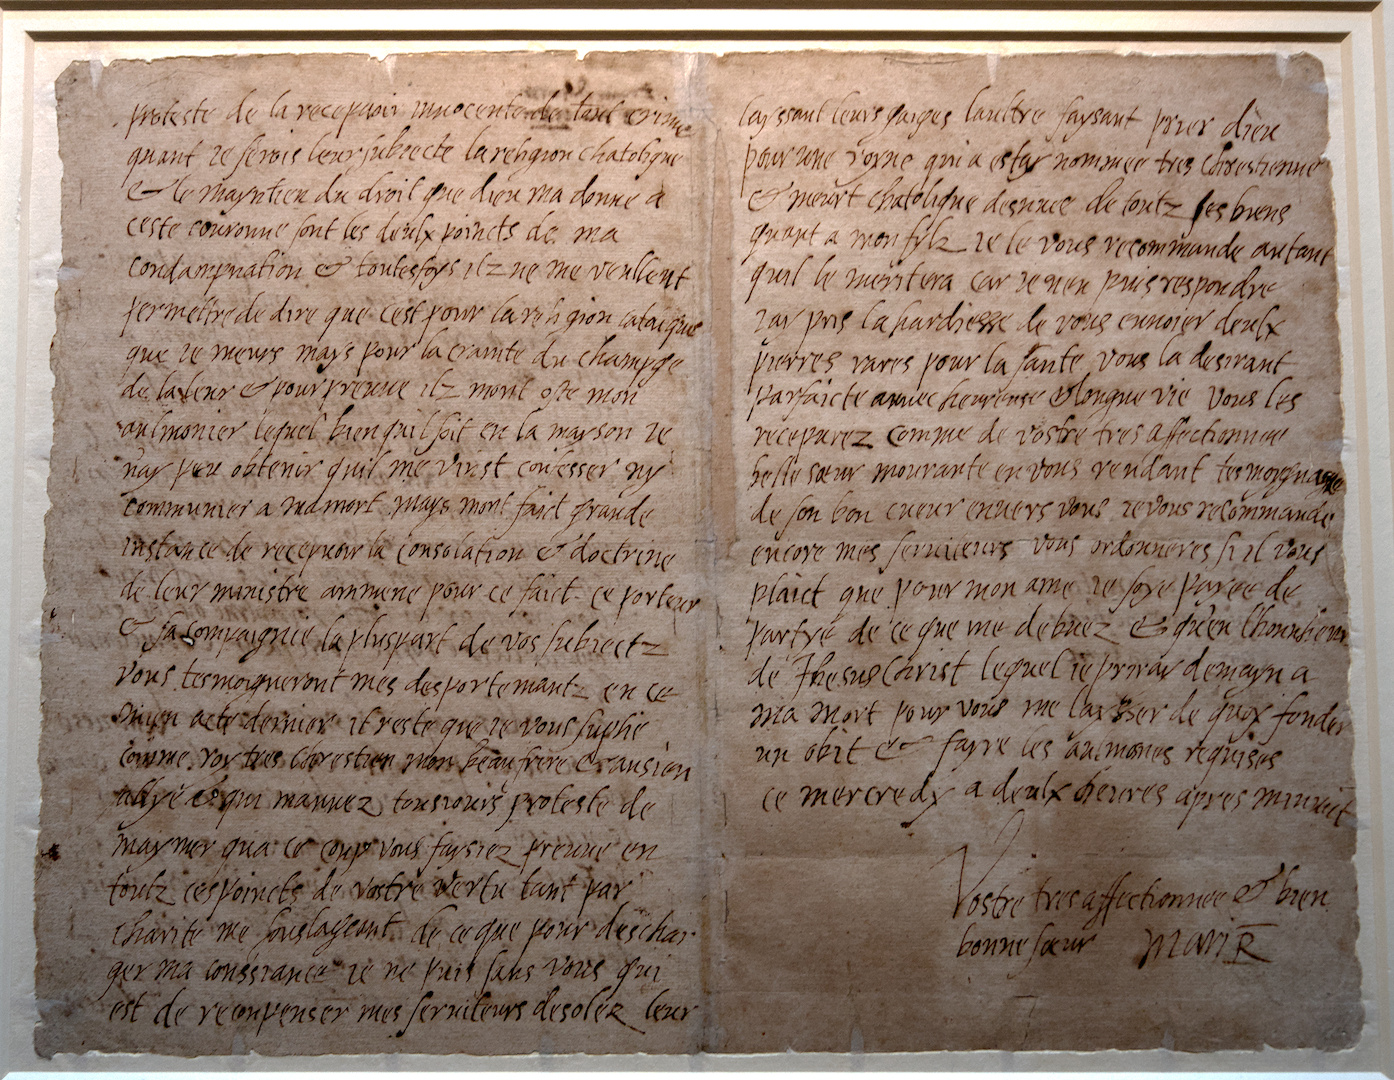 proteste de la recepvoir innocente de tout crime
quant ie serois leur subiecte la religion chatolique
& le mayntien du droit que dieu ma donne a
ceste couronne sont les deulx poincts de ma
condampnation & toutesfoys ilz ne me veullent
permettre de dire que cest pour la religion catolique
que ie meurs mays pour la crainte du champge
de la leur & pour preuue ilz mont oste mon
aulmonier lequel bien quil soit en la mayson ie
nay peu obtenir quil me vinst confesser ny
communier a ma mort mays mont faict grande
instance de recepvoir la consolation & doctrine
de leur ministre ammene pour ce faict ce porteur
& sa compaignie la pluspart de vos subiectz
vous tesmoigneront mes desportemantz en ce
mien acte dernier il reste que ie vous suplie
comme roy tres chrestien mon beau frere & ansien
allye & qui mauuez tousiours proteste de
maymer qua ce coup vous faysiez preuue en
toutz ces poincts de vostre vertu tant par
charite me soulageant de ce que pour deschar
ger ma conssiance ie ne puis sans vous qui
est de recompenser mes seruiteurs desolez leur
layssant leurs gaiges laultre faysant prier dieu
pour une royne qui a estay nommee tres chrestienne
& meurt chatolique desnuee de toutz ses biens
quant a mon filz ie le vous recommande autant
quil le meritera car ie nen puis respondre
iay pris la hardiesse de vous enuoier deulx
pierres rares pour la sante vous la desirant
parfaicte auuec heureuse & longue vie vous les
recepvrez comme de vostre tres affectionnee
belle soeur mourante en vous rendant tesmoygnasge
de son bon cueur enuers vous ie vous recommande
encore mes seruiteurs vous ordonneres si il vous
plaict que pour mon ame ie soye payee de
partye de ce que me debuez & qu'en l'honnheur
de Jhesus Christ lequel ie priray demayn a
ma mort pour vous me laysser de quoy fonder
un obit & fayre les aulmones requises
ce mercredy a deulx heures apres minuit
Vostre tres affectionnee & bien
bonne soeur Mari R